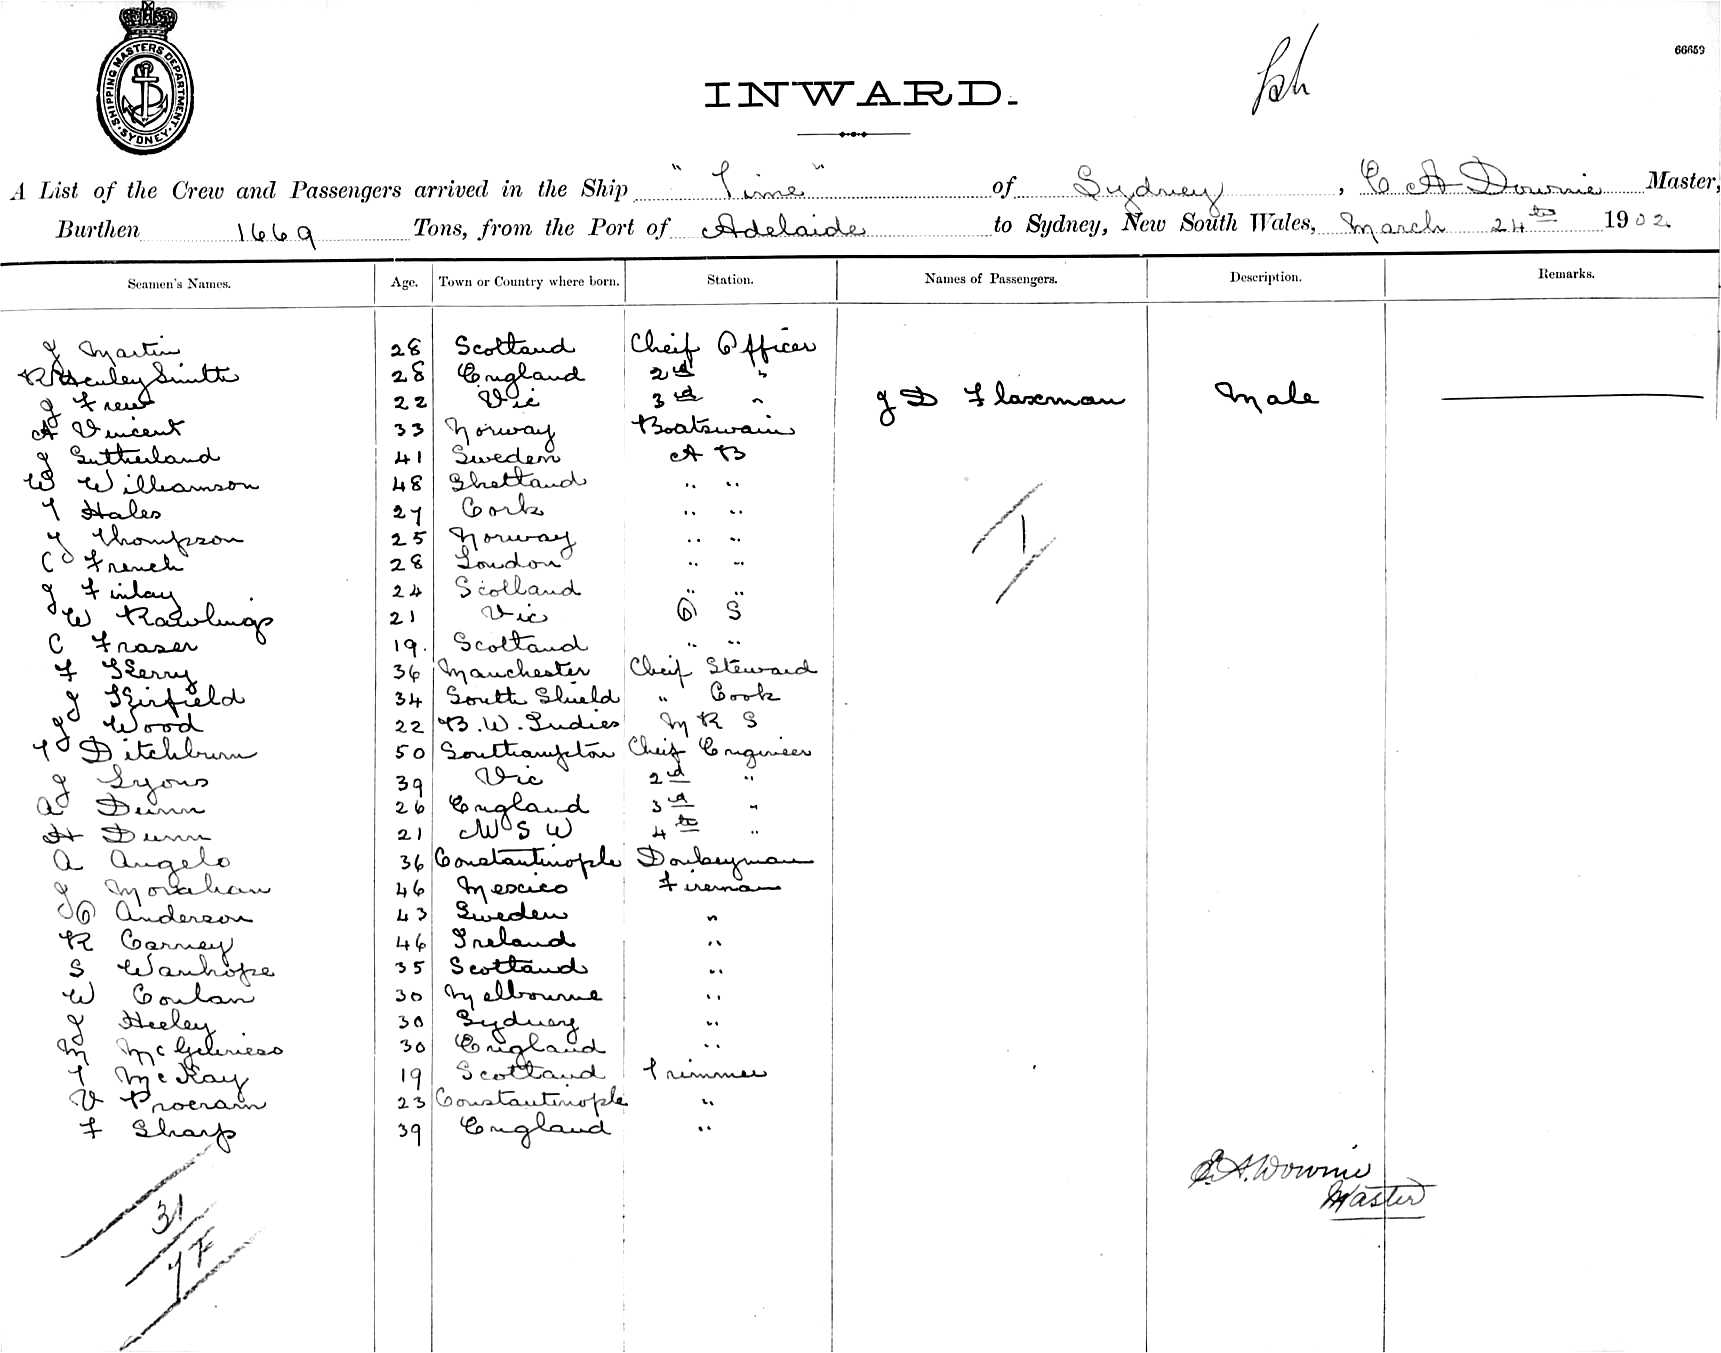 SHIPPING MASTERS DEPARTMENT. SYDNEY.
66659
INWARD.
A List of the Crew and Passengers arrived in the Ship "Time" of Sydney, C A Downie Master,
Burthen 1669 Tons, from the Port of Adelaide to Sydney, New South Wales, March 24th 1902
Seamen's Names. Age. Town or Country where born. Station. Names of Passengers. Description. Remarks.
J Martin 28 Scotland Cheif Officer
R Henley Smith 28 England 2nd "
J Frew 22 Vic 3rd " J D Flaxman Male
A Vincent 33 Norway Boatswain
J Sutherland 41 Sweden A B
W Williamson 48 Shetland " "
T Hales 27 Cork " "
J Thompson 25 Norway " "
C French 28 London " "
J Finlay 24 Scotland " "
W Rawlings 21 Vic O S
C Fraser 19. Scotland " "
F Kerry 36 Manchester Cheif Steward
J Kirfield 34 South Shield " Cook
J Wood 22 B.W. Indies M R S
T Ditchburn 50 Southampton Cheif Engineer
J Lyons 39 Vic 2nd "
A Dunn 26 England 3rd "
H Dunn 21 N S W 4th "
A Angelo 36 Constantinople Donkeyman
J Morahan 46 Mexico Fireman
O Anderson 43 Sweden "
R Carney 46 Ireland "
S Wanhope 35 Scotland "
W Conlan 30 Melbourne "
J Heeley 30 Sydney "
M 30 England "
T McKay 19 Scotland Trimmer
V Procram 23 Constantinople "
F Sharp 39 England "
1
C. A. Downie
Master
31